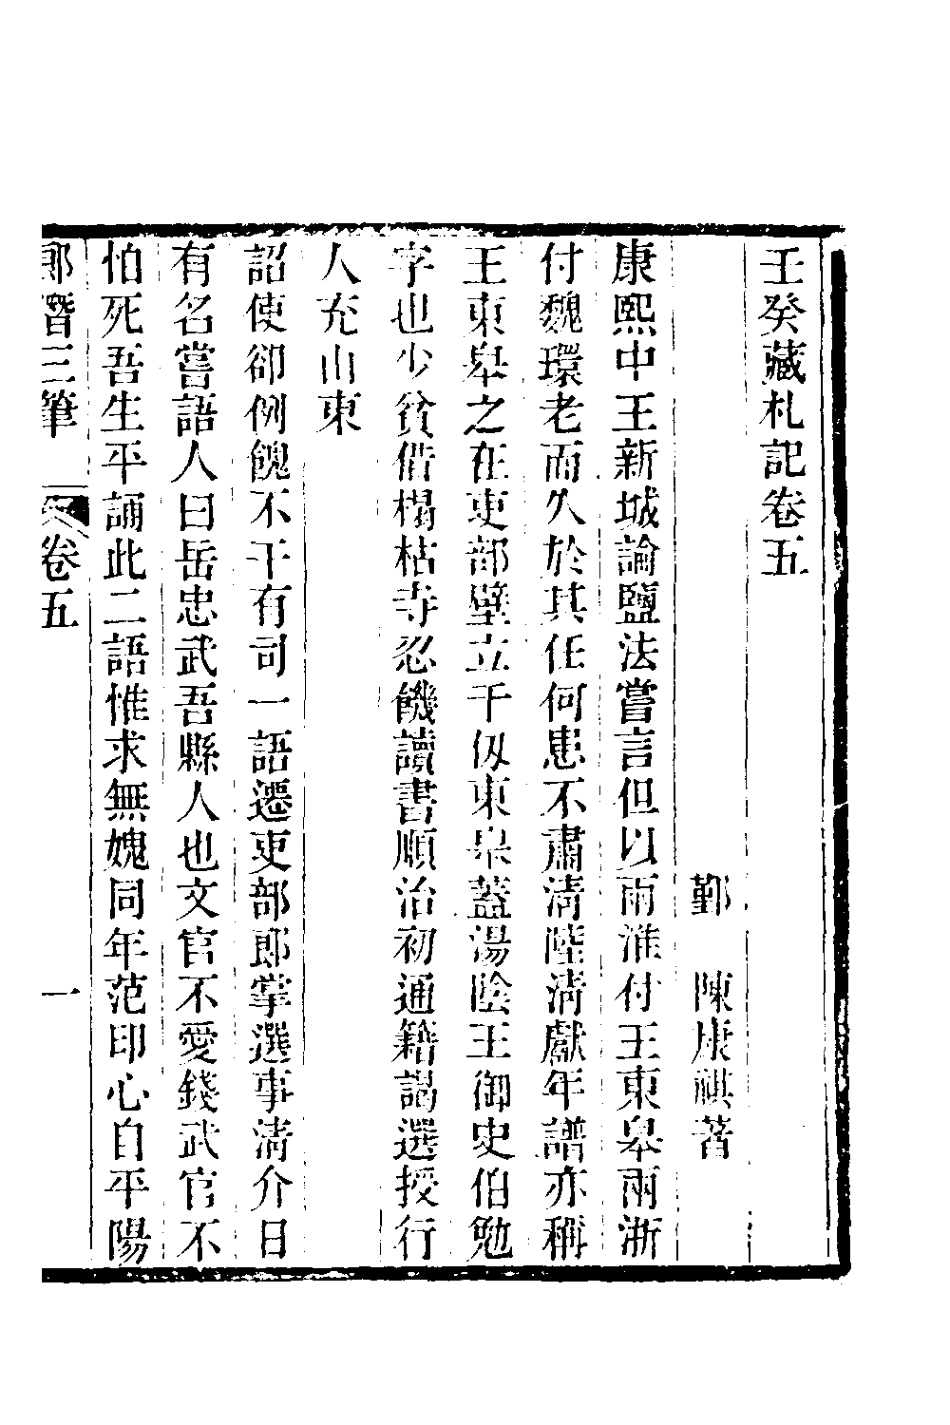 壬癸藏札記卷五
鄞　陳康祺著
康熙中王新城論鹽法嘗言但以兩淮付王東皋兩浙
付魏環老而久於其任何患不肅清陸清獻年譜亦稱
王東皋之在吏部壁立千仭東皋蓋湯陰王御史伯勉
字也少貧借榻枯寺忍饑讀書順治初通籍謁選授行
人充山東
詔使卻例餽不干有司一語遷吏部郎掌選事清介日
有名嘗語人曰岳忠武吾縣人也文官不愛錢武官不
怕死吾生平誦此二語惟求無媿同年范印心自平陽
郎潛三筆　卷五　一